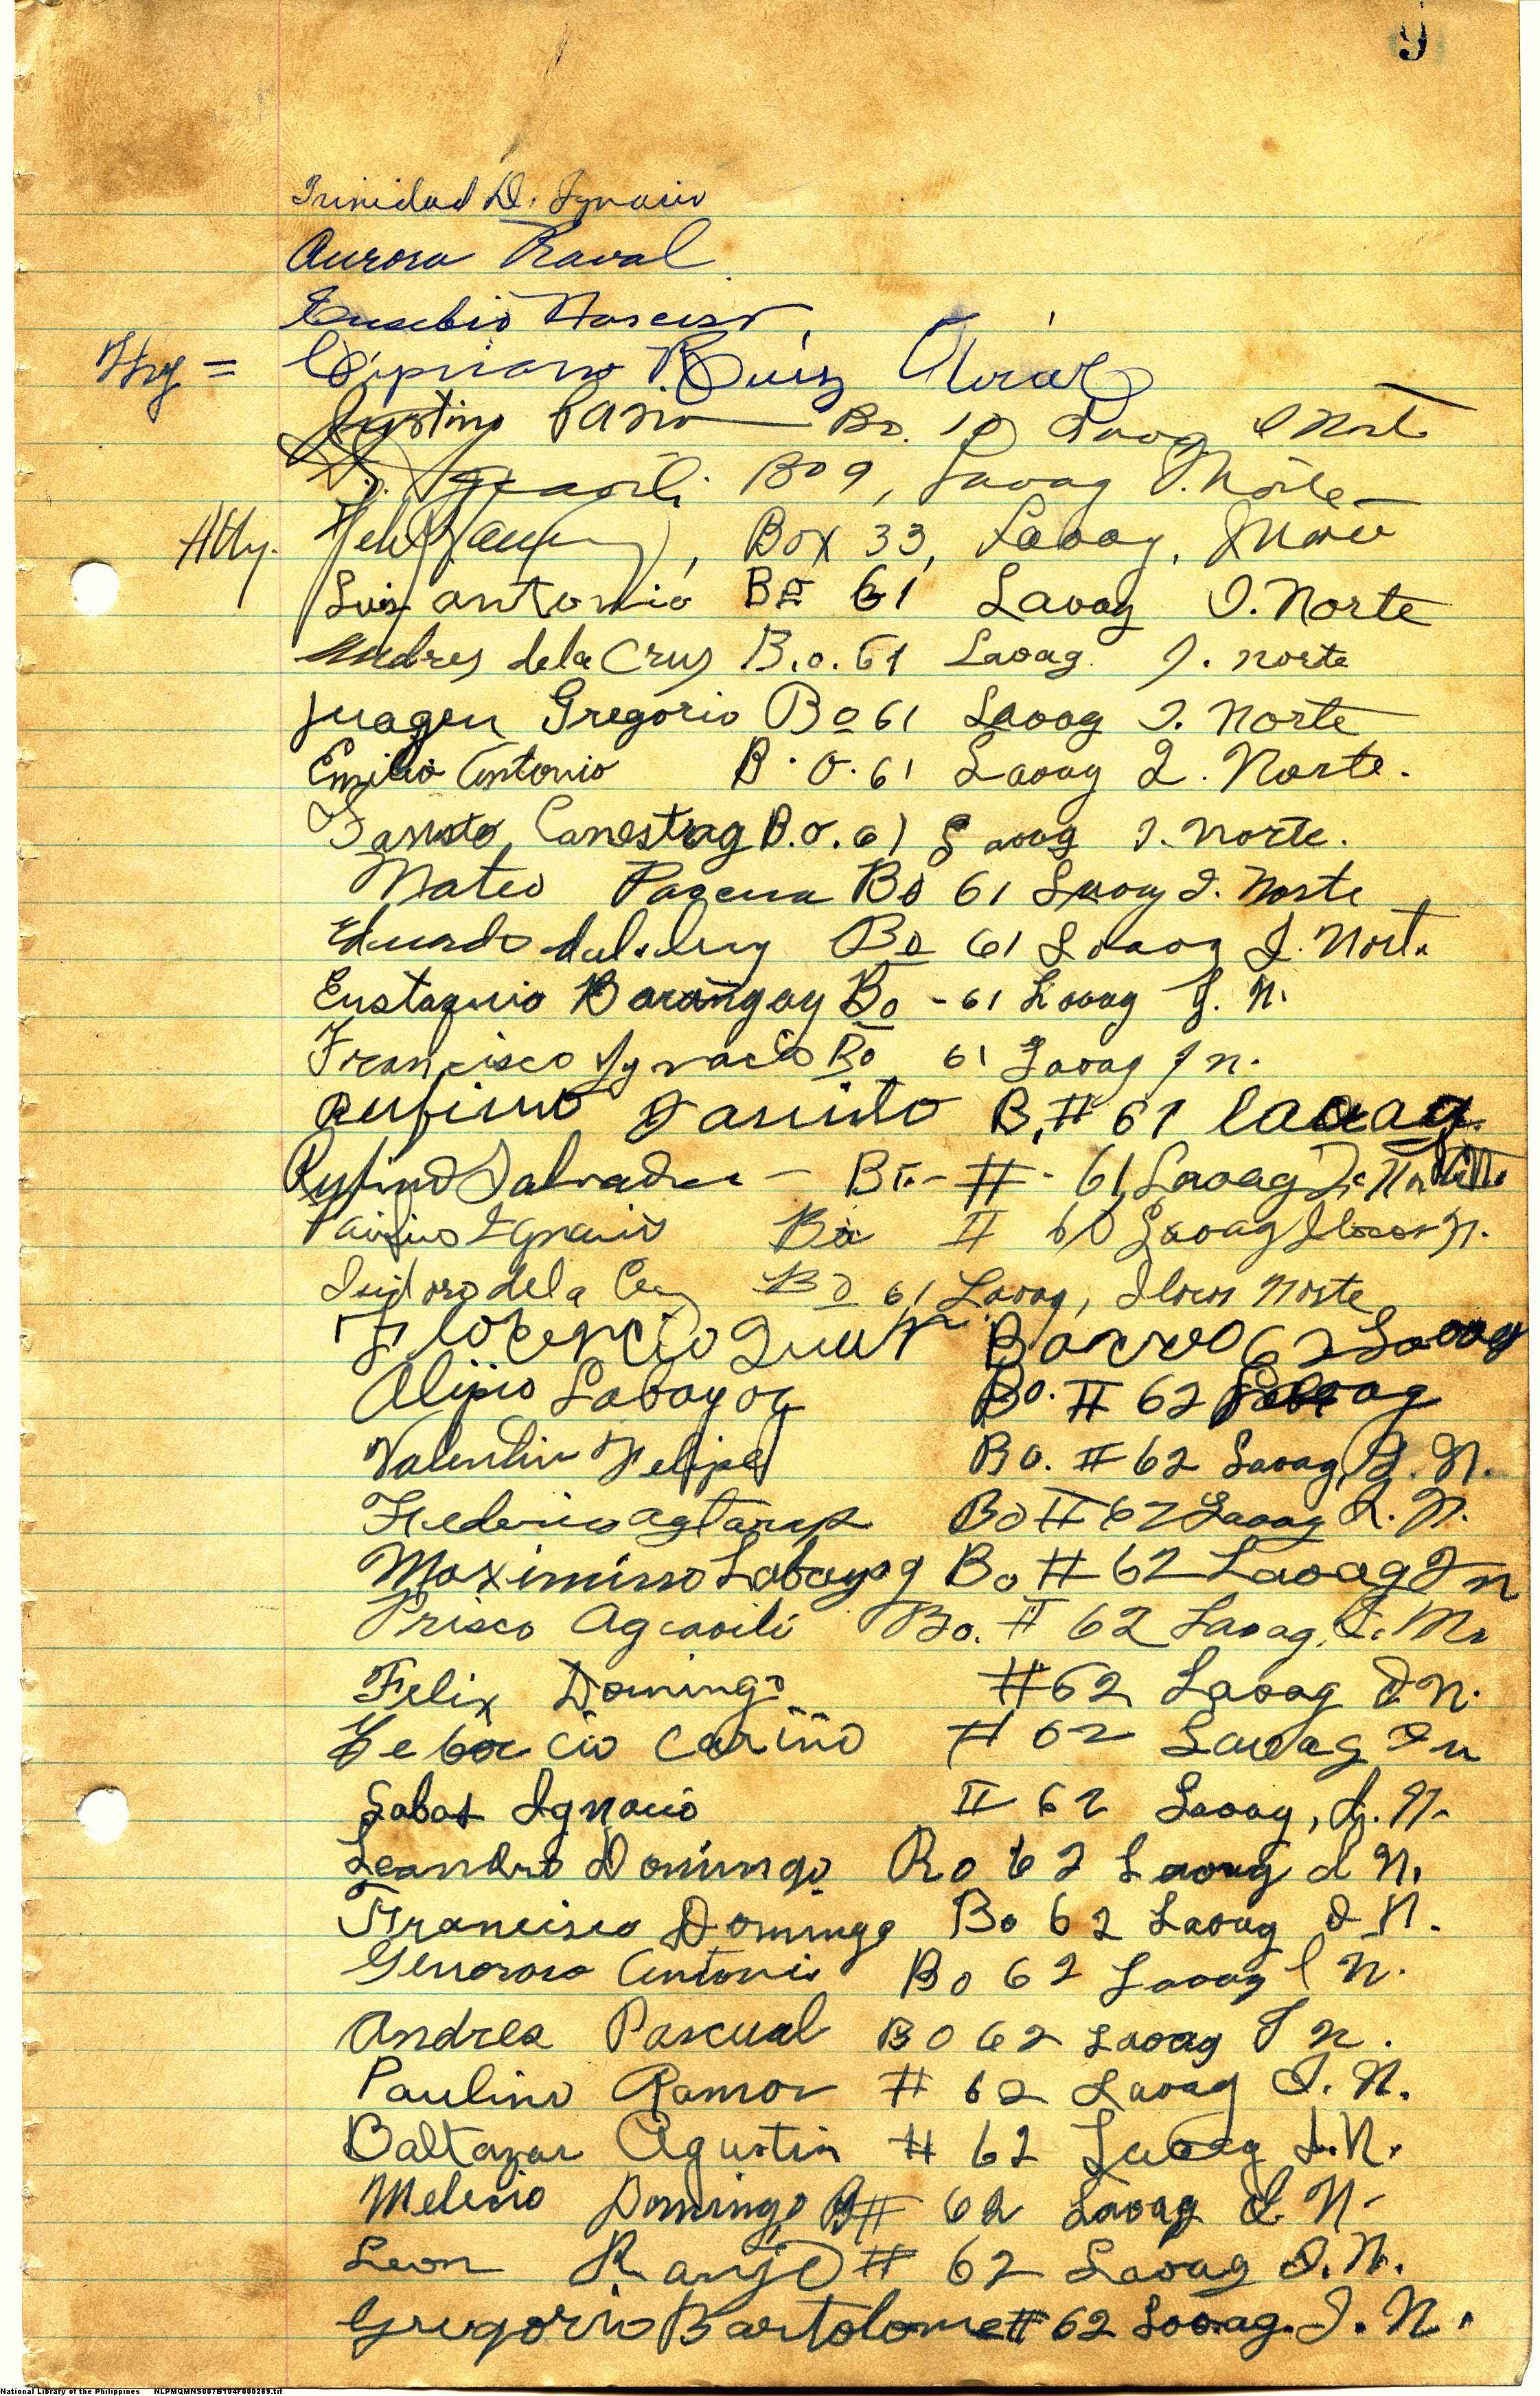 9
Trinidad D. Ignacio
Aurora Raval
Eusebio Narciso,
Cipriano Ruiz
Bo. 10 Laoag I Norte
Bo 9, Laoag I. Norte
Atty. Box 33, Laoag, I Norte
Luis Antonio Bo 61 Laoag I. Norte
Andres dela Cruz B.o. 61 Laoag I. norte
Gregorio Bo 61 Laoag I. Norte
Emilio Antonio B.O. 61 Laoag I. Norte.
Fausto B.o. 61 Laoag I. Norte.
Mateo Bo 61 Laoag I. Norte
Eduardo Bo 61 Laoag I. Norte
Eustaquio Barangay Bo - 61 Laoag I. N.
Francisco Ignacio Bo 61 Laoag I n.
Rufino Jacinto B. # 61 laoag.
Rufino Salvador - Bo. - # - 61 Laoag I. Norte
Ignacio Bo # 61 Laoag Ilocos N.
Isidoro dela Cruz Bo 61 Laoag, Ilocos Norte
Florencio Barrio 62 Laoag
Alipio Labayog Bo. # 62 Laoag
Valentin Felipe Bo. # 62 Laoag, I. N.
Federico Agtarap Bo # 62 Laoag I. N.
Maximino Labayog Bo # 62 Laoag I n
Prisco Agcaoili Bo. # 62 Laoag, I. N.
Felix Domingo # 62 Laoag I N.
Cariño # 62 Laoag I n
Sabas Ignacio # 62 Laoag, I. N.
Leandro Domingo Bo 62 Laoag I N.
Francisco Domingo Bo 62 Laoag I N.
Generoso Antonio Bo 62 Laoag I N.
Andres Pascual BO 62 Laoag I n.
Paulino Ramos # 62 Laoag I. N.
Baltazar Agustin # 62 Laoag I. N.
Melecio Domingo B# 62 Laoag I. N.
Leon # 62 Laoag I. N.
Gregorio Bartolome # 62 Laoag. I. N.
National Library of the Philippines NLPMQMNS007B104F000289.tif